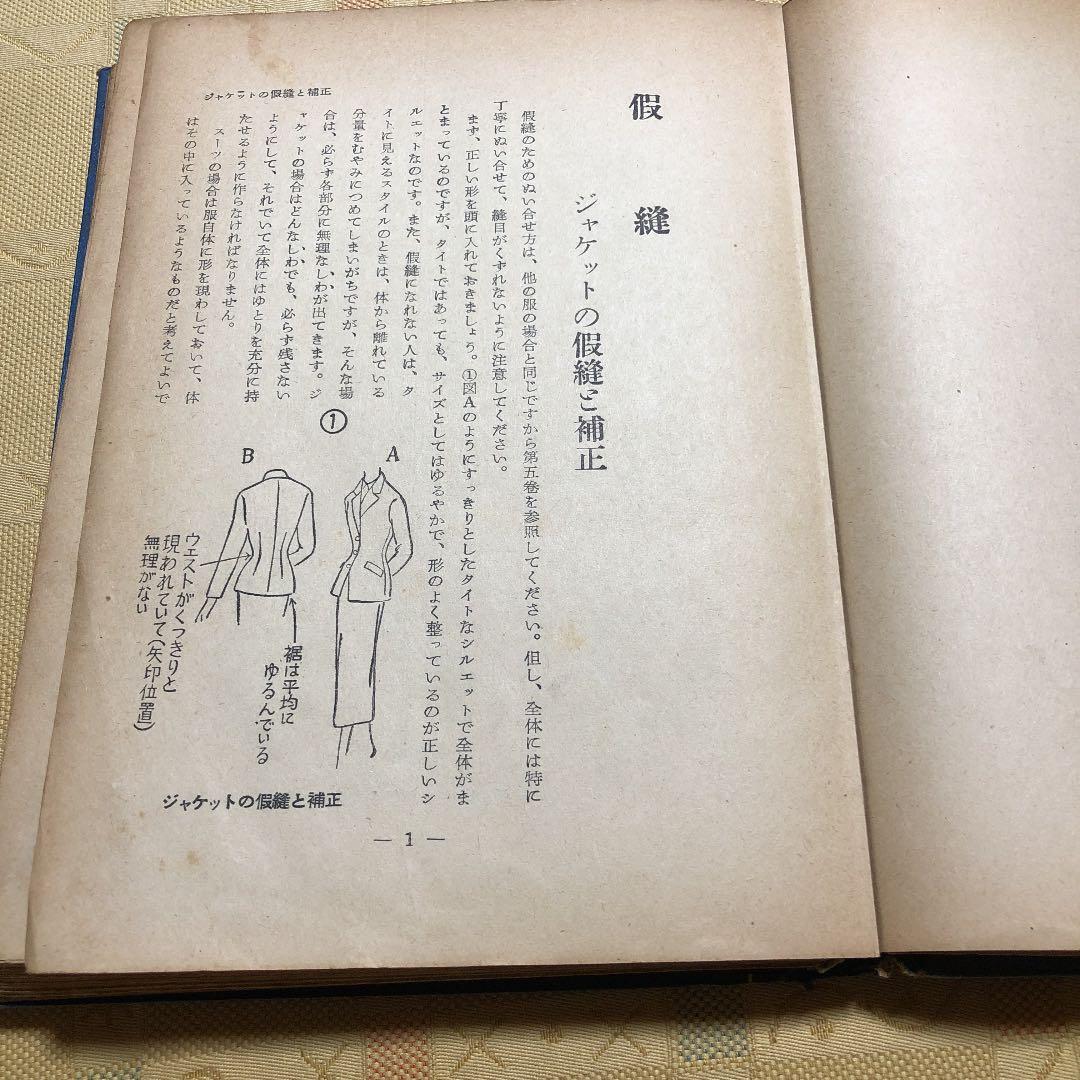 假縫
ジャケットの假縫と補正
假縫のためのぬい合せ方は、他の服の場合と同じですから第五卷を参照してください。但し、全体には特に
丁寧にぬい合せて、縫目がくずれないように注意してください。
まず、正しい形を頭に入れておきましょう。①図Aのようにすっきりとしたタイトなシルエットで全体がま
とまっているのですが、タイトではあっても、サイズとしてはゆるやかで、形のよく整っているのが正しいシ
ルエットなのです。また、假縫になれない人は、タ
イトに見えるスタイルのときは、体から離れている
分量をむやみにつめてしまいがちですが、そんな場
合は、必らず各部分に無理なしわが出てきます。ジ
ャケットの場合はどんなしわでも、必らず残さない
ようにして、それでいて全体にはゆとりを充分に持
たせるように作らなければなりません。
スーツの場合は服自体に形を現わしておいて、体
はその中に入っているようなものだと考えてよいで
ジャケットの假縫と補正
①
A
B
裾は平均に
ゆるんでいる
ウエストがくっきりと
現われていて(矢印位置)
無理がない
ジャケットの假縫と補正
— 1 —